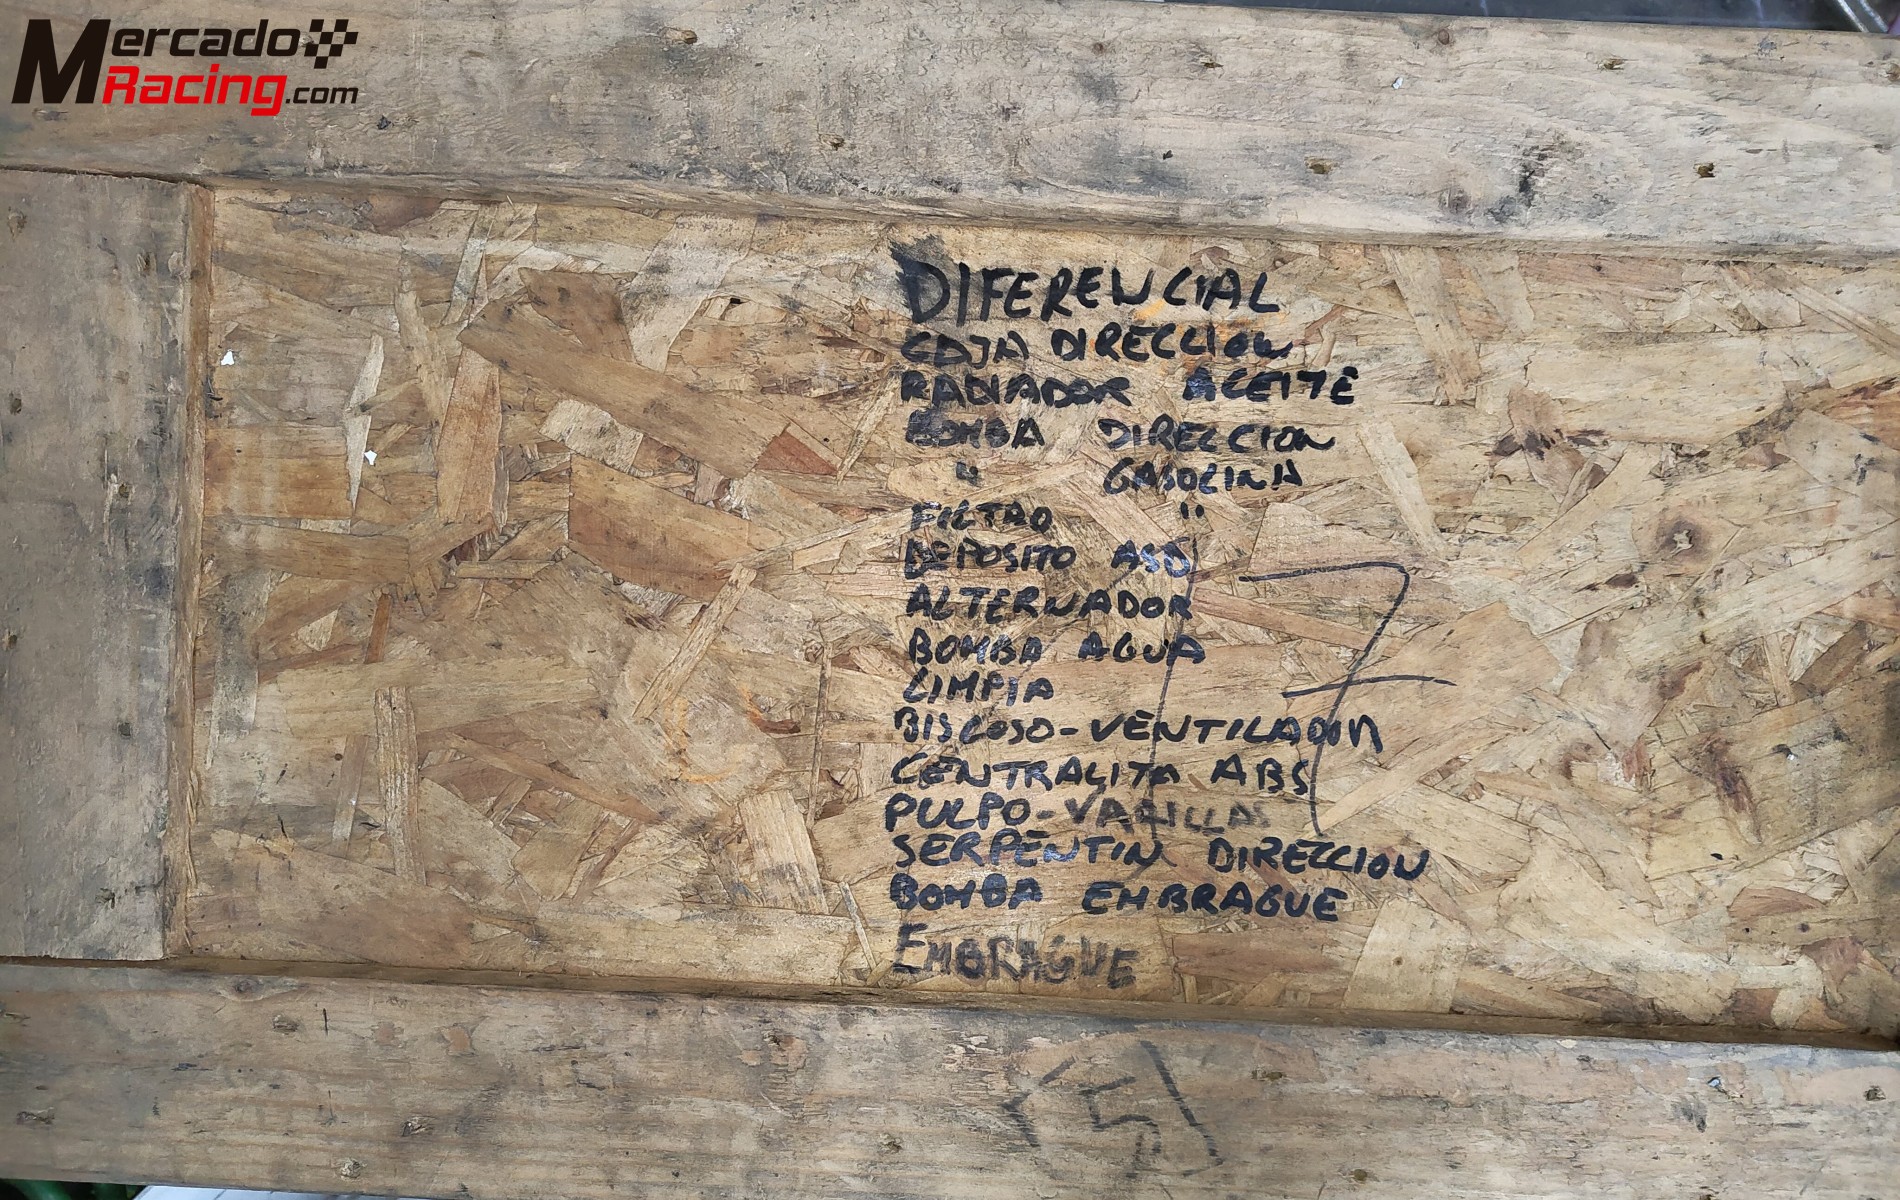 Mercado
Racing.com
DIFERENCIAL
CAJA DIRECCION
RADIADOR ACEITE
BOMBA DIRECCION
" GASOLINA
FILTRO "
DEPOSITO ASD
ALTERNADOR
BOMBA AGUA
LIMPIA
BISCOSO-VENTILADOR
CENTRALITA ABS
PULPO-VARILLAS
SERPENTIN DIRECCION
BOMBA EMBRAGUE
EMBRAGUE
7
5